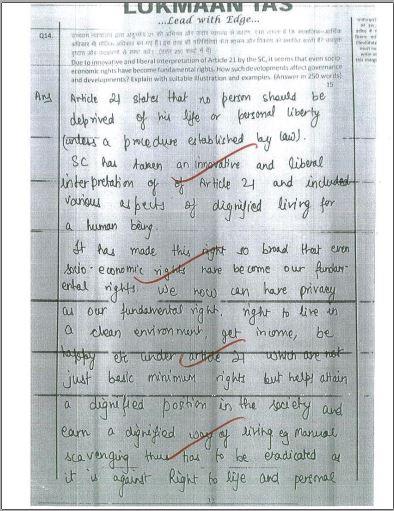 LUKMAAN IAS
...Lead with Edge...
Q14.
Due to innovative and liberal interpretation of Article 21 by the SC, it seems that even socio-
economic rights have become fundamental rights. How such developments affect governance
and developments? Explain with suitable illustration and examples. (Answer in 250 words)
15
Ans Article 21 states that no person should be
deprived of his life or personal liberty
(unless a procedure established by law).
SC has taken an innovative and liberal
interpretation of of Article 21 and included
various aspects of dignified living for
a human being.
It has made this right so broad that even
socio-economic rights have become our fundam-
ental rights. We now can have privacy
as our fundamental right, right to live in
a clean environment, get income, be
happy etc under article 21 which are not
just basic minimum rights but helps attain
a dignified position in the society and
earn a dignified way of living eg manual
scavenging thus has to be eradicated as
it is against Right to life and personal